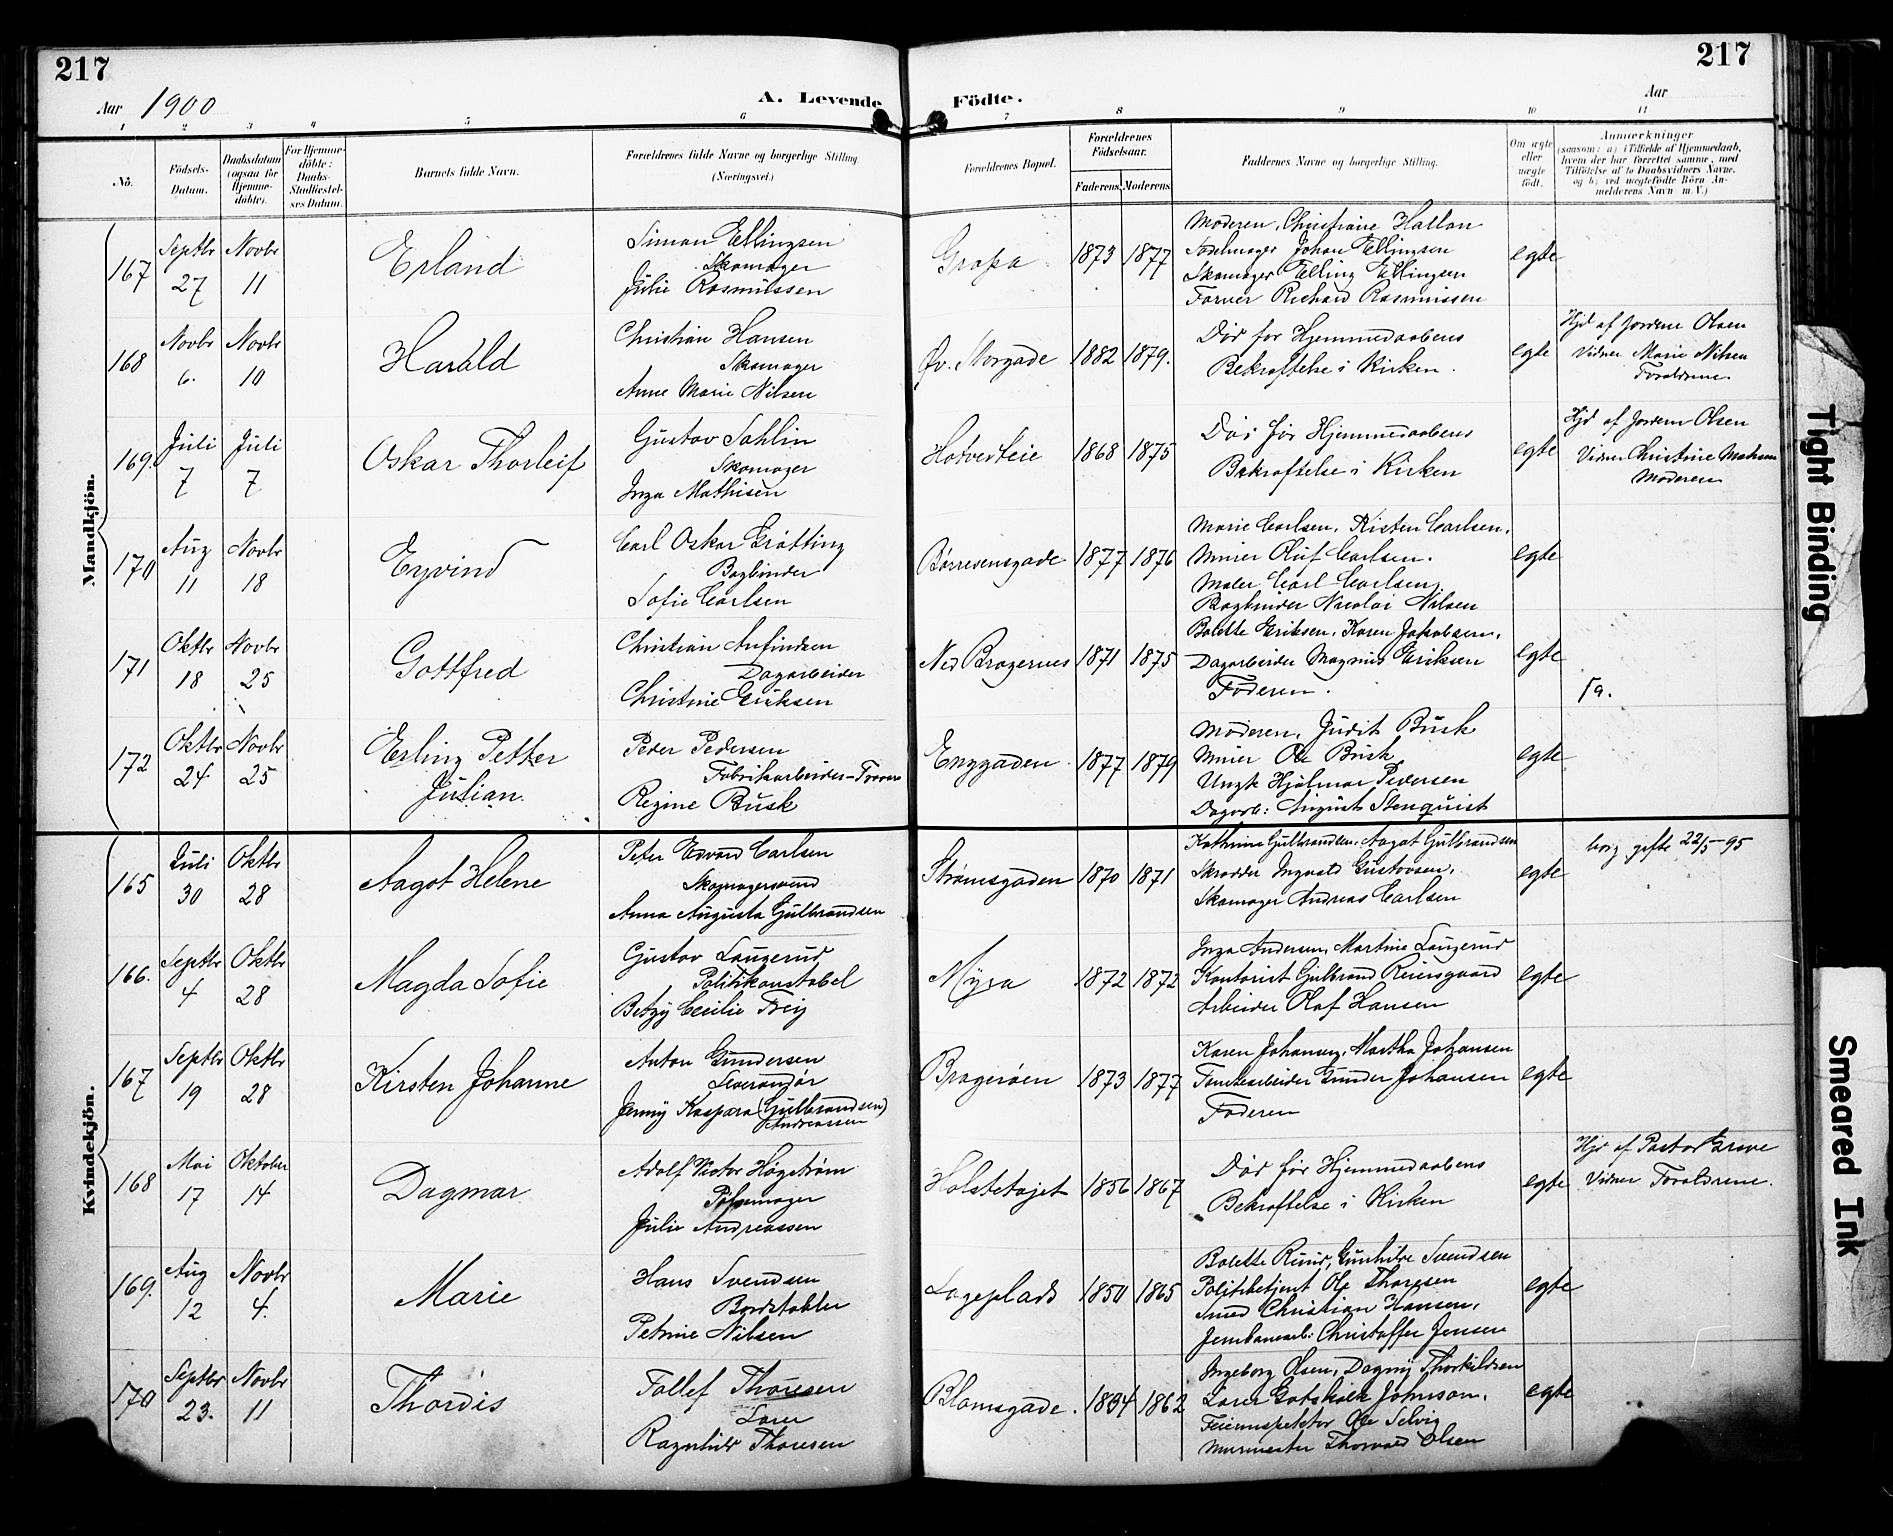 217
217
Aar 1900
A. Levende
Födte.
Aar
1 2 3 4 5 6 7 8 9 10 11
No.
Födsels-
Datum.
Daabsdatum
(ogsaa for
Hjemme-
döbte).
For Hjemme-
döbte:
Daabs-
Stadfæstel-
ses Datum.
Barnets fulde Navn.
Forældrenes fulde Navne og borgerlige Stilling.
(Næringsvei.)
Forældrenes Bopæl.
Forældrenes
Födselsaar.
Faderens. Moderens.
Faddernes Navne og borgerlige Stilling.
Om ægte
eller
uægte
født.
Anmærkninger
(saasom: a) i Tilfælde af Hjemmedaab,
hvem der har forrettet samme, med
Tilföielse af to Daabsvidners Navne.
og b) ved uægtefödte Börn An-
melderens Navn m. V.)
Mandkjön.
167
Septbr
27
Novbr
11
Erland
Simon Ellingsen
Skomager
Julie Rasmussen
Grofsa
1873
1877
Moderen, Christiane Hallan
Sadelmager Johan Ellingsen
Skomager Elling Ellingsen
Farver Richard Rasmussen
egte
168
Novbr
6.
Novbr
10
Harald
Christian Hansen
Skomager
Anne Marie Nilsen
Øv. Storgade
1882
1879.
Død før Hjemmedaabens
Bekræftelse i Kirken.
egte
Hjd af Jordem Olsen
Vidner Marie Nilsen
Forældrene
169.
Juli
7
Juli
7
Oskar Thorleif
Gustav Sahlin
Skomager
Inga Mathisen
Hotvedteie
1868
1875
Død før Hjemmedaabens
Bekræftelse i Kirken
egte
Hjd af Jordem Olsen
Vidner Christine
Moderen
170
Aug
11
Novbr
18
Eyvind
Carl Oskar Gråtting
Bogbinder
Sofie Carlsen
Børresensgade
1877
1876
Marie Carlsen, Kisten Carlsen,
Murer Oluf Carlsen.
Maler Carl Carlsen,
Bogbinder Nicolai Nilsen
egte
171
Oktbr
18
Novbr
25
Gottfred
Christian Anfindsen
Dagarbeider
Christine Eriksen
Ned Bragernes
1871
1875
Bolette Eriksen, Karen Jakobsen,
Dagarbeider Magnus Eriksen
Faderen.
egte
172
Oktbr
24
Novbr
25
Erling Petter
Julian.
Peder Pedersen
Fabrikarbeider-
Regine Busk
Enggaden
1877
1879
Moderen, Judit Busk
Murer Ole Busk
Ungk Hjalmar Pedersen
Dagarb: August Stenquist
egte
Kvindekjön.
165
Juli
30
Oktbr
28
Aagot Helene
Peter Edvard Carlsen
Skomagersvend
Anna Augusta Gulbrandsen
Strømsgaden
1870
1871
Kathrine Gulbrandsen, Aagot Gulbrandsen
Skrædder Ingvald Gustavsen,
Skomager Andreas Carlsen
egte
borg. gifte 22/5-95
166.
Septbr
4
Oktbr
28
Magda Sofie
Gustav Laugerud
Politikonstabel
Betzy Cecilie Frey
Myra
1872
1872
Inga Andersen, Martine Laugerud
Kontorist Gulbrand Reiersgaard
Arbeider Olaf Hansen
egte
167
Septbr
19
Oktbr
28
Kirsten Johanne
Anton Gundersen
Leverandør
Jenny Kaspara (Gulbrandsen)
Andreassen
Bragerøen
1873
1877
Karen Johansen, Martha Johansen
Tomtearbeider Gunder Johansen
Faderen
egte
168
Mai
17
Oktober
14
Dagmar
Adolf Victor Høgstrøm
Pølsemager
Julie Andreassen
Holstetajet
1856
1867
Død før Hjemmedaabens
Bekræftelse i Kirken
egte
Hjd af Pastor Greve
Vidner Forældrene.
169.
Aug
12
Novbr
4.
Marie
Hans Svendsen
Bordstabler
Petrine Nilsen
Lageplads
1850
1865
Bolette Ruud, Gunhilde Svendsen
Politibetjent Ole Thoresen
Smed Christian Hansen,
Jernbanearb: Christoffer Jensen
egte
170
Septbr
23.
Novbr
11
Thordis
Tollef Thoresen
Lærer
Ragnhild Thoresen
Blomsgade.
1834
1862
Ingeborg Olsen, Dagny Thorkildsen
Lærer Gotskalk Johnson,
Feierinspektør Ole Selvig
Murmester Thorvald Olsen
egte
Tight Binding
Smeared Ink